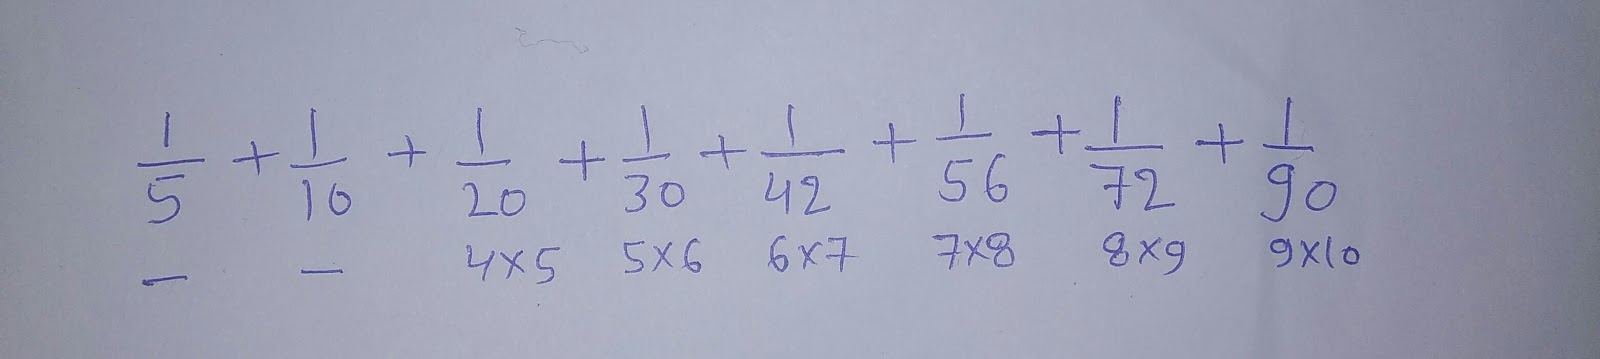 1/5 + 1/10 + 1/20 + 1/30 + 1/42 + 1/56 + 1/72 + 1/90
— — 4×5 5×6 6×7 7×8 8×9 9×10